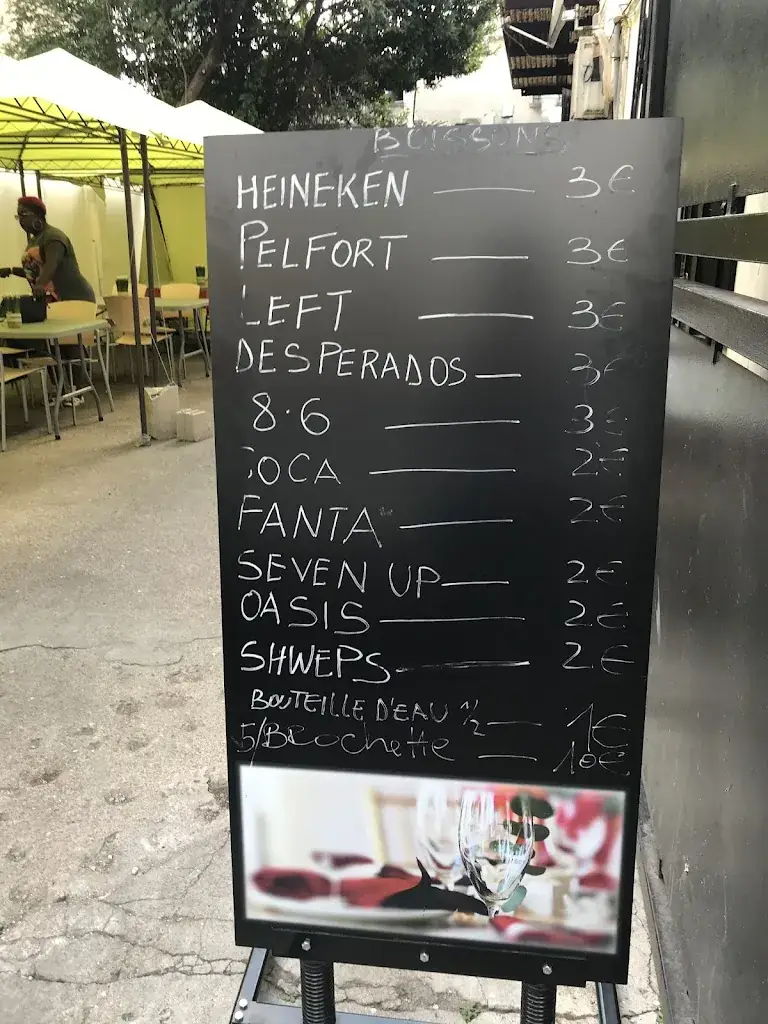 BOISSONS
HEINEKEN 3€
PELFORT 3€
LEFT 3€
DESPERADOS 3€
8.6 3€
COCA 2€
FANTA 2€
SEVEN UP 2€
OASIS 2€
SHWEPS 2€
BOUTEILLE D'EAU 1/2 1€
5/BROCHETTE 10€